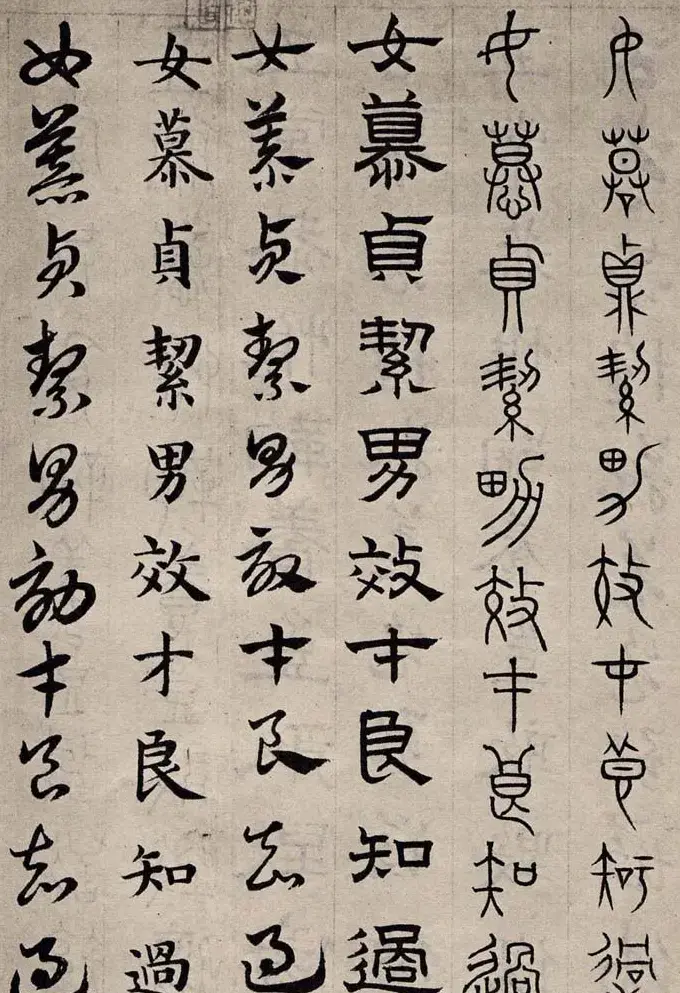 女慕貞絜男效才良知過
女慕貞絜男效才良知過
女慕貞絜男效才良知過
女慕貞絜男效才良知過
女慕貞絜男效才良知過
女慕貞絜男效才良知過